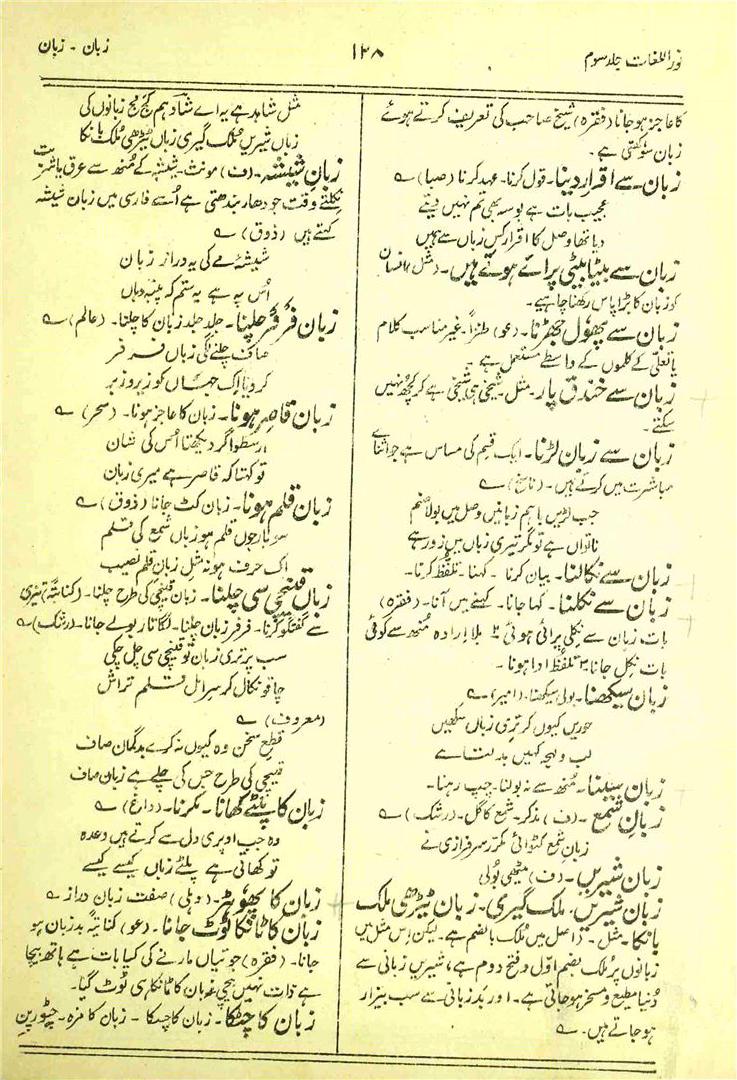 نور اللغات جلد سوم
۱۳۸
زبان - زبان
کا عاجز ہو جانا (فقرہ) شیخ صاحب کی تعریف کرتے ہوئے
زبان سوکھتی ہے۔
زبان سے اقرار دینا۔ قول کرنا۔ عہد کرنا (صبا) ؎
عجیب بات ہے بوسہ بھی تم نہیں دیتے
دیا تھا وصل کا اقرار کس زباں سے ہمیں
زبان سے بیٹا بیٹی پرائے ہوتے ہیں۔ (مثل) انسان
کو زبان کا بڑا پاس رکھنا چاہیے۔
زبان سے پھول جھڑنا۔ (عو) طنزاً۔ غیر مناسب کلام
یا تعلّی کے کلموں کے واسطے مستعمل ہے۔
زبان سے خندق پار۔ مثل۔ شیخی ہی شیخی ہے کر کچھ نہیں
سکتے۔
زبان سے زبان لڑنا۔ ایک قسم کی مساس ہے جو اثنائے
مباشرت میں کرتے ہیں۔ (ناسخ) ؎
جب لڑیں باہم زبانیں وصل میں بولا صنم
ناتواں ہے تو مگر تیری زباں میں زور ہے
زبان سے نکالنا۔ بیان کرنا۔ کہنا۔ تلفظ کرنا۔
زبان سے نکلنا۔ کہا جانا۔ کہنے میں آنا۔ (فقرہ)
بات زبان سے نکلی پرائی ہوئی ۲ بلا ارادہ منھ سے کوئی
بات نکل جانا ۳ تلفظ ادا ہونا۔
زبان سیکھنا۔ بولی سیکھنا۔ (امیر) ؎
حوریں کیوں کر تری زباں سیکھیں
لب و لہجہ کہیں بدلتا ہے
زبان سینا۔ منھ سے نہ بولنا۔ چپ رہنا۔
زبانِ شمع۔ (ف) مذکر۔ شمع کا گل۔ (رشک) ؎
زبان شمع کٹوائی مکرر سرفرازی نے
زبان شیریں۔ (ف) میٹھی بولی
زبان شیریں ملک گیری۔ زبان ٹیڑھی ملک
بانکا۔ مثل۔ دراصل میں مُلک بالضم ہے۔ لیکن اس مثل میں
زبانوں پر مُلک بضم اوّل و فتح دوم ہے، شیریں زبانی سے
دنیا مطیع و مسخر ہو جاتی ہے۔ اور بدزبانی سے سب بیزار
ہو جاتے ہیں۔ ؎
مثل شاہد ہے یہ اے شاد ہم کج مج زبانوں کی
زباں شیریں مُلک گیری زباں ٹیڑھی مُلک بانکا
زبانِ شیشہ۔ (ف) مونث۔ شیشہ کے منھ سے عرق یا شربت
نکلتے وقت جو دھار بندھتی ہے اُسے فارسی میں زبان شیشہ
کہتے ہیں (ذوق) ؎
شیشۂ مے کی یہ دراز زبان
اُس پہ ہے یہ ستم کہ پنبہ دہاں
زبان فر فر چلنا۔ جلد جلد زبان کا چلنا۔ (عالم) ؎
صاف چلنے لگی زباں فر فر
کر دیا اک جہاں کو زیر و زبر
زبان قاصر ہونا۔ زبان کا عاجز ہونا۔ (سحر) ؎
ارسطو اگر دیکھتا اُس کی شان
تو کہتا کہ قاصر ہے میری زبان
زبان قلم ہونا۔ زبان کٹ جانا (ذوق) ؎
سو بار جوں قلم ہو زباں شمع کی قلم
اک حرف ہو نہ مثل زبانِ قلم نصیب
زبان قینچی سی چلنا۔ زبان قینچی کی طرح چلنا۔ (کنایتہً) تیزی
سے گفتگو کرنا۔ فرفر زبان چلنا۔ لگاتار بولے جانا۔ (رشک) ؎
سب پر تری زبان تو قینچی سی چل چکی
چاقو نکال کر سر اہل قلم تراش
(معروف) ؎
قطع سخن وہ کیوں نہ کرے بدگمان صاف
قینچی کی طرح جس کی چلے ہے زبان صاف
زبان کا پلٹے کھانا۔ مکرنا۔ (داغ) ؎
وہ جب اوپری دل سے کرتے ہیں وعدہ
تو کھاتی ہے پلٹے زباں کیسے کیسے
زبان کا پھوہڑ۔ (دہلی) صفت۔ زبان دراز ؎
زبان کا ٹانکا ٹوٹ جانا۔ (عو) کنایتہً بدزبان ہو
جانا۔ (فقرہ) جوتیاں مارنے کی کیا بات ہے ہاتھ بیچا
ہے ذات نہیں بیچی زبان کا ٹانکا ہی ٹوٹ گیا۔
زبان کا چٹکا۔ زبان کا چسکا۔ زبان کا مزہ۔ چٹورپن